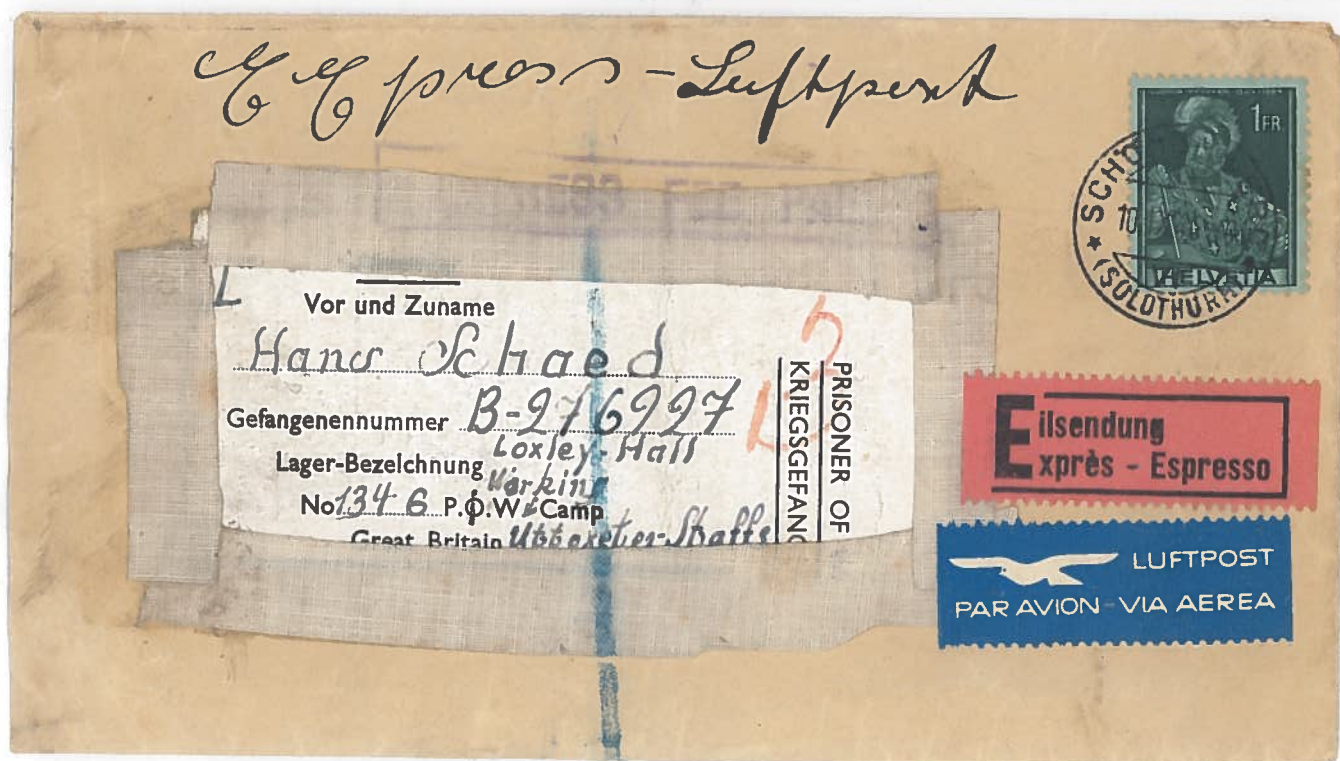 Express - Luftpost
1FR
HELVETIA
SCHÖ
10
(SOLOTHURN)
L
Vor und Zuname
Hans Schaed
Gefangenennummer B-276927
Loxley-Hall
Lager-Bezeichnung Working
No 134 6 P.O.W. Camp
Great Britain Uttoxeter-Staffs
PRISONER OF
KRIEGSGEFANG
Eilsendung
Exprès - Espresso
LUFTPOST
PAR AVION - VIA AEREA